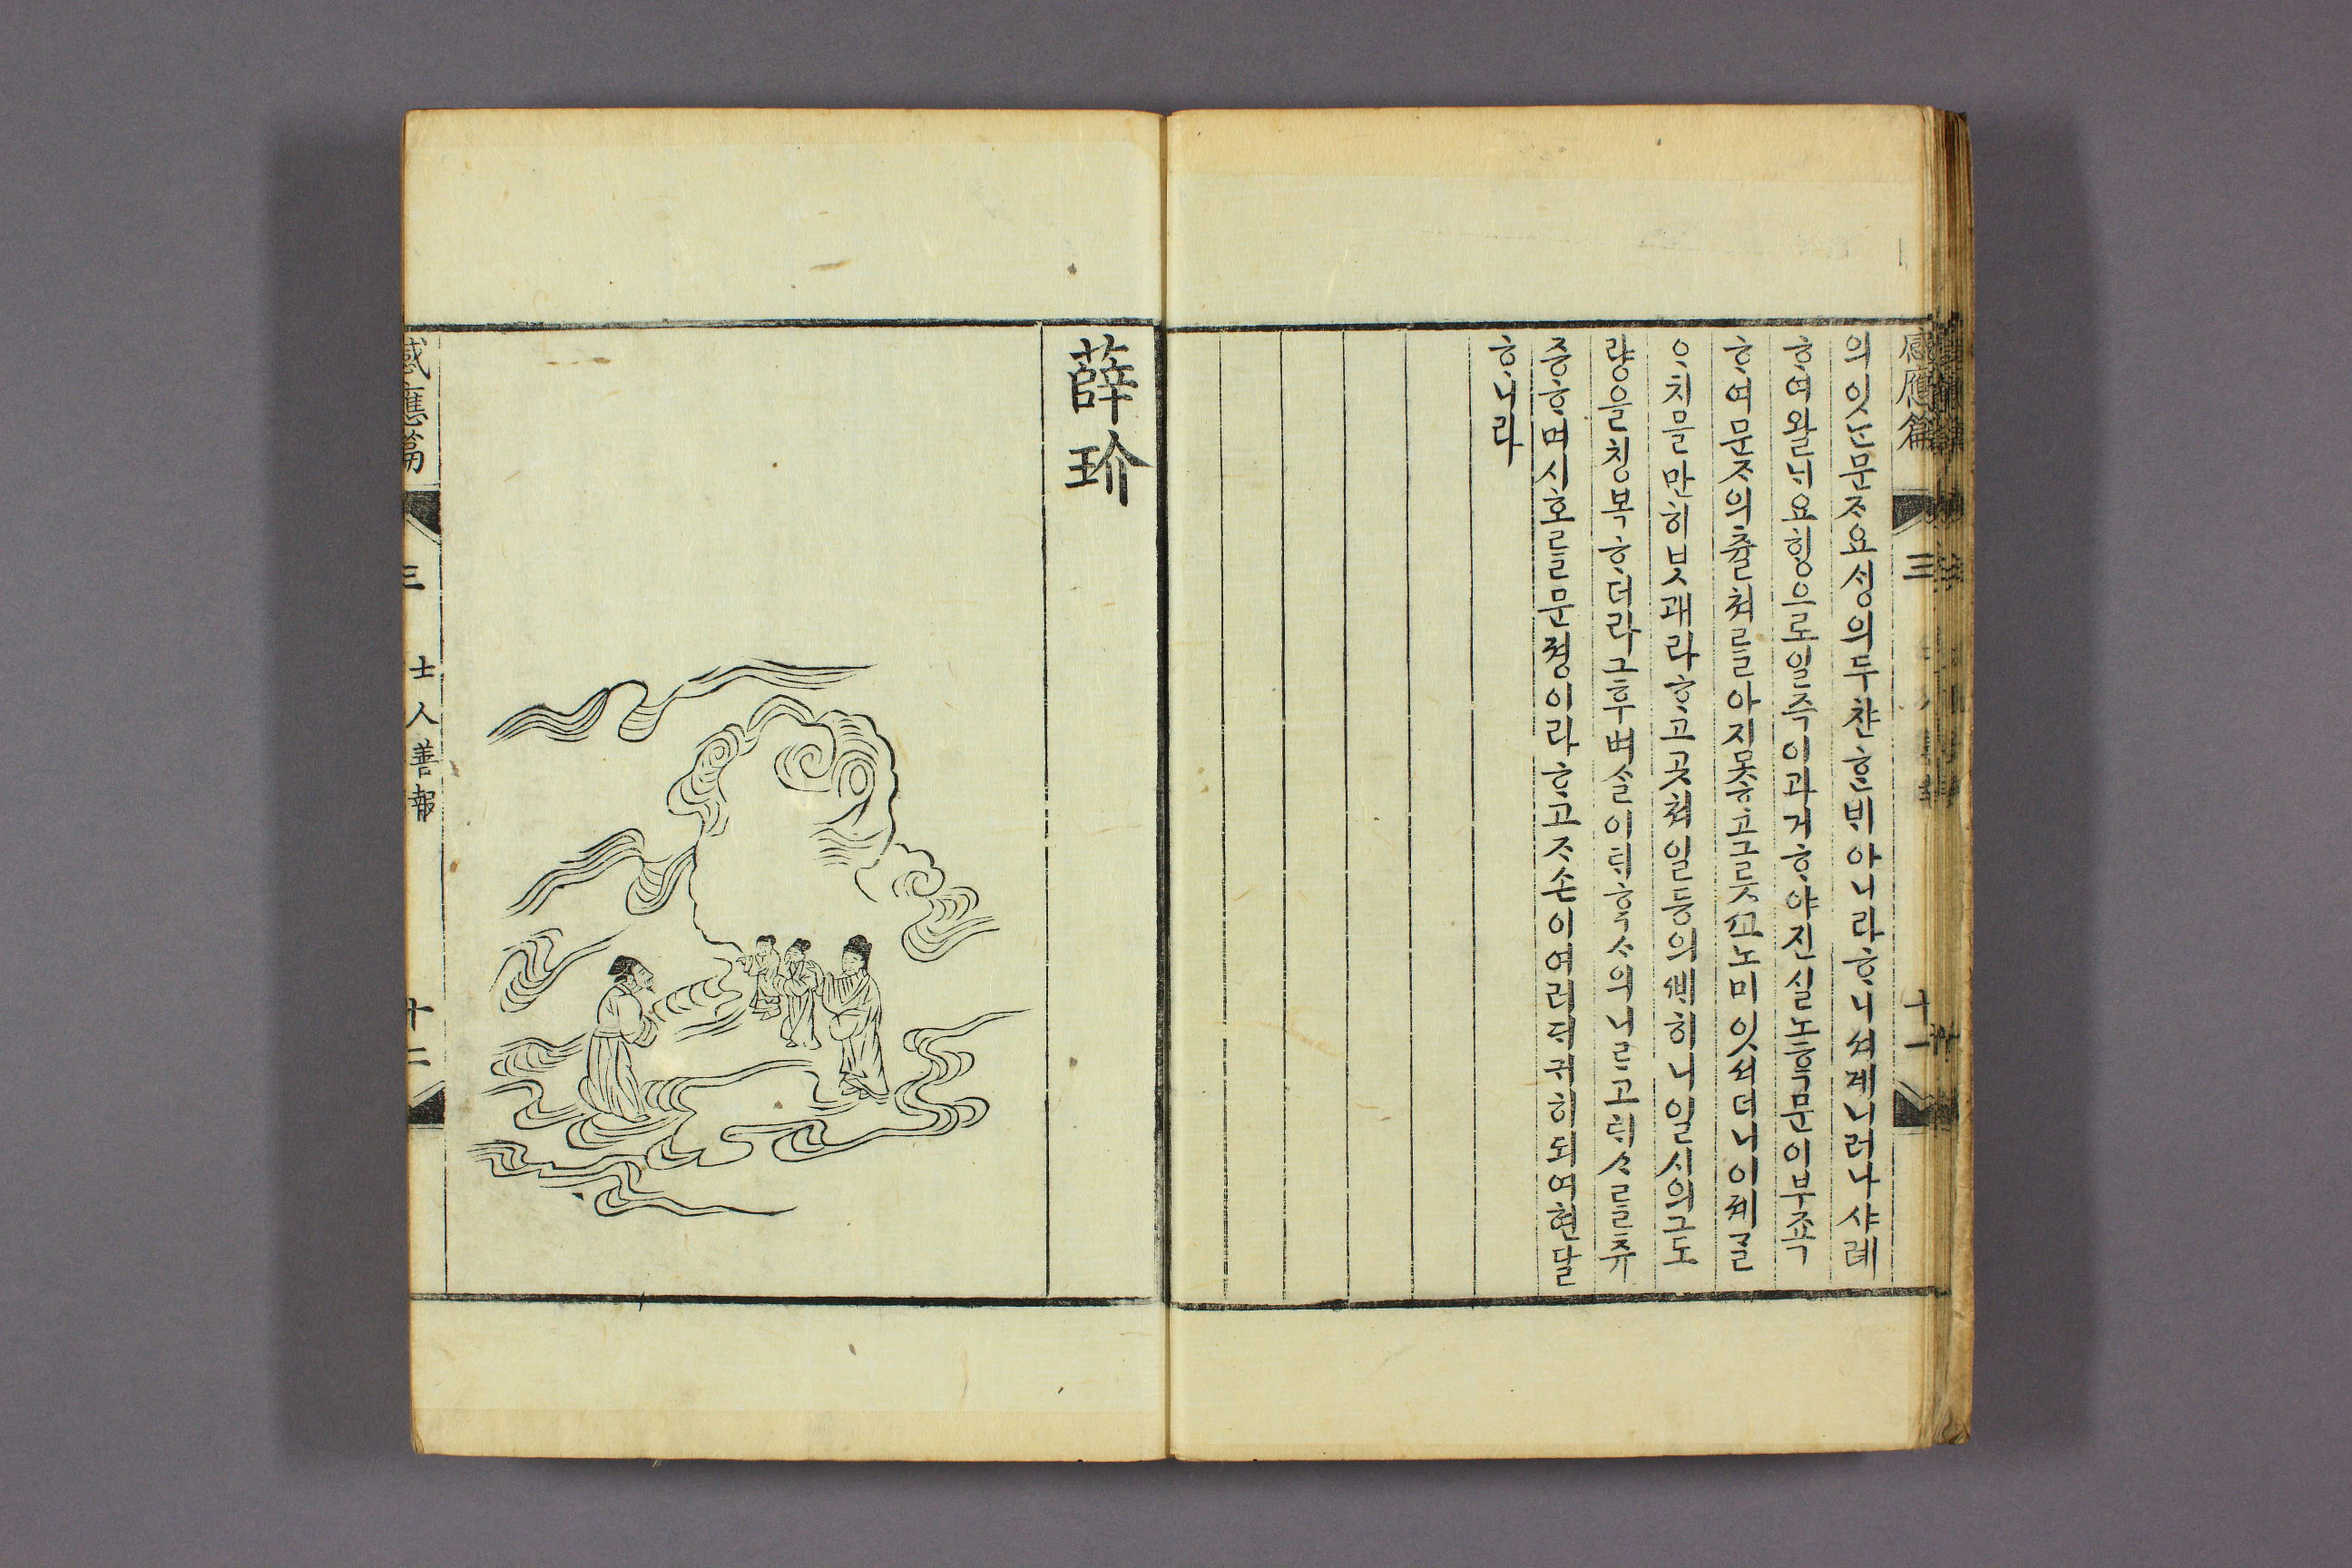 感應篇 三 十一
의잇ᄂᆞᆫ문ᄌᆞ요셩의두챤ᄒᆞᆫᄇᆡ아니라ᄒᆞ니셔계니러나샤례
ᄒᆞ여왈ᄂᆡ요ᄒᆡᆼ으로일즉이과거ᄒᆞ야진실노ᄒᆞᆨ문이부죡
ᄒᆞ여문ᄌᆞ의츌쳐를아지못ᄒᆞ고그릇ᄭᅩ노미잇셔더니이졔ᄀᆞᆯ
ᄋᆞ치믈만히밧괘라ᄒᆞ고곳쳐일등의ᄡᅦ히니일시의그도
량을칭복ᄒᆞ더라그후벼ᄉᆞᆯ이ᄐᆡᄒᆞᆨᄉᆞ의니르고ᄐᆡᄉᆞ를쥬
증ᄒᆞ며시호를문졍이라ᄒᆞ고ᄌᆞ손이여러ᄃᆡ귀히되여현달
ᄒᆞ니라
薛玠
感應篇 三 士人善報 十二